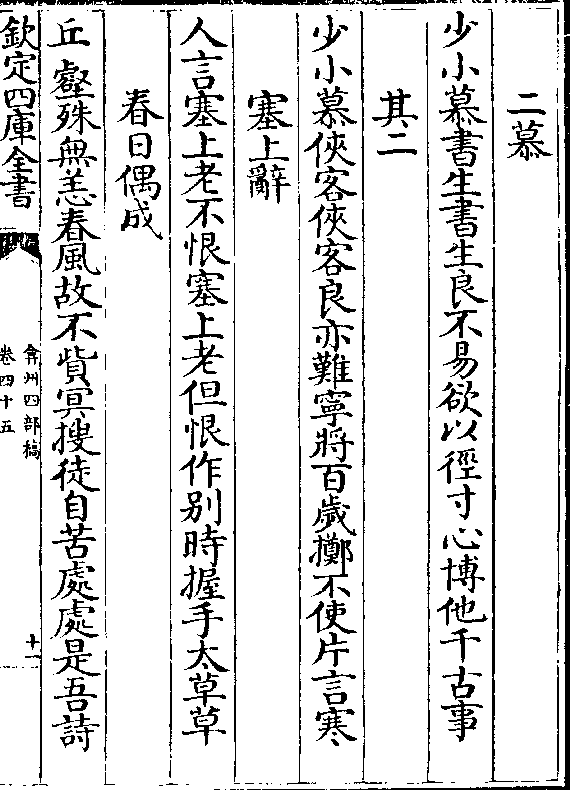 二慕
少小慕書生書生良不易欲以徑寸心博他千古事
其二
少小慕俠客俠客良亦難寧將百歲擲不使片言寒
塞上辭
人言塞上老不恨塞上老但恨作別時握手太草草
春日偶成
丘壑殊無恙春風故不貲冥搜徒自苦處處是吾詩
欽定四庫全書
弇州四部稿
卷四十五
十一